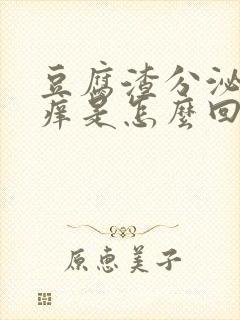 豆腐渣分泌
痒是怎麼回
原恵美子